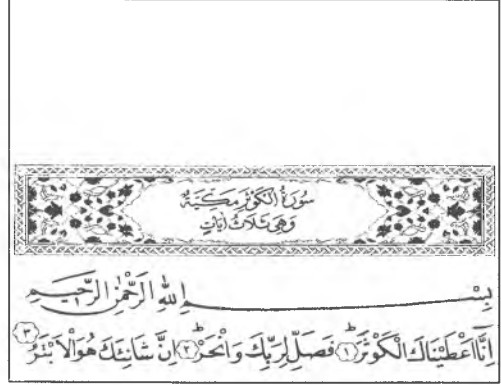 سُورَةُ الْكَوْثَرِ مَكِّيَّةٌ
وَهِيَ ثَلَاثُ اٰيَاتٍ
بِسْمِ اللّٰهِ الرَّحْمٰنِ الرَّحِيمِ
اِنَّٓا اَعْطَيْنَاكَ الْكَوْثَرَۜ ﴿١﴾ فَصَلِّ لِرَبِّكَ وَانْحَرْۜ ﴿٢﴾ اِنَّ شَانِئَكَ هُوَ الْاَبْتَرُ ﴿٣﴾